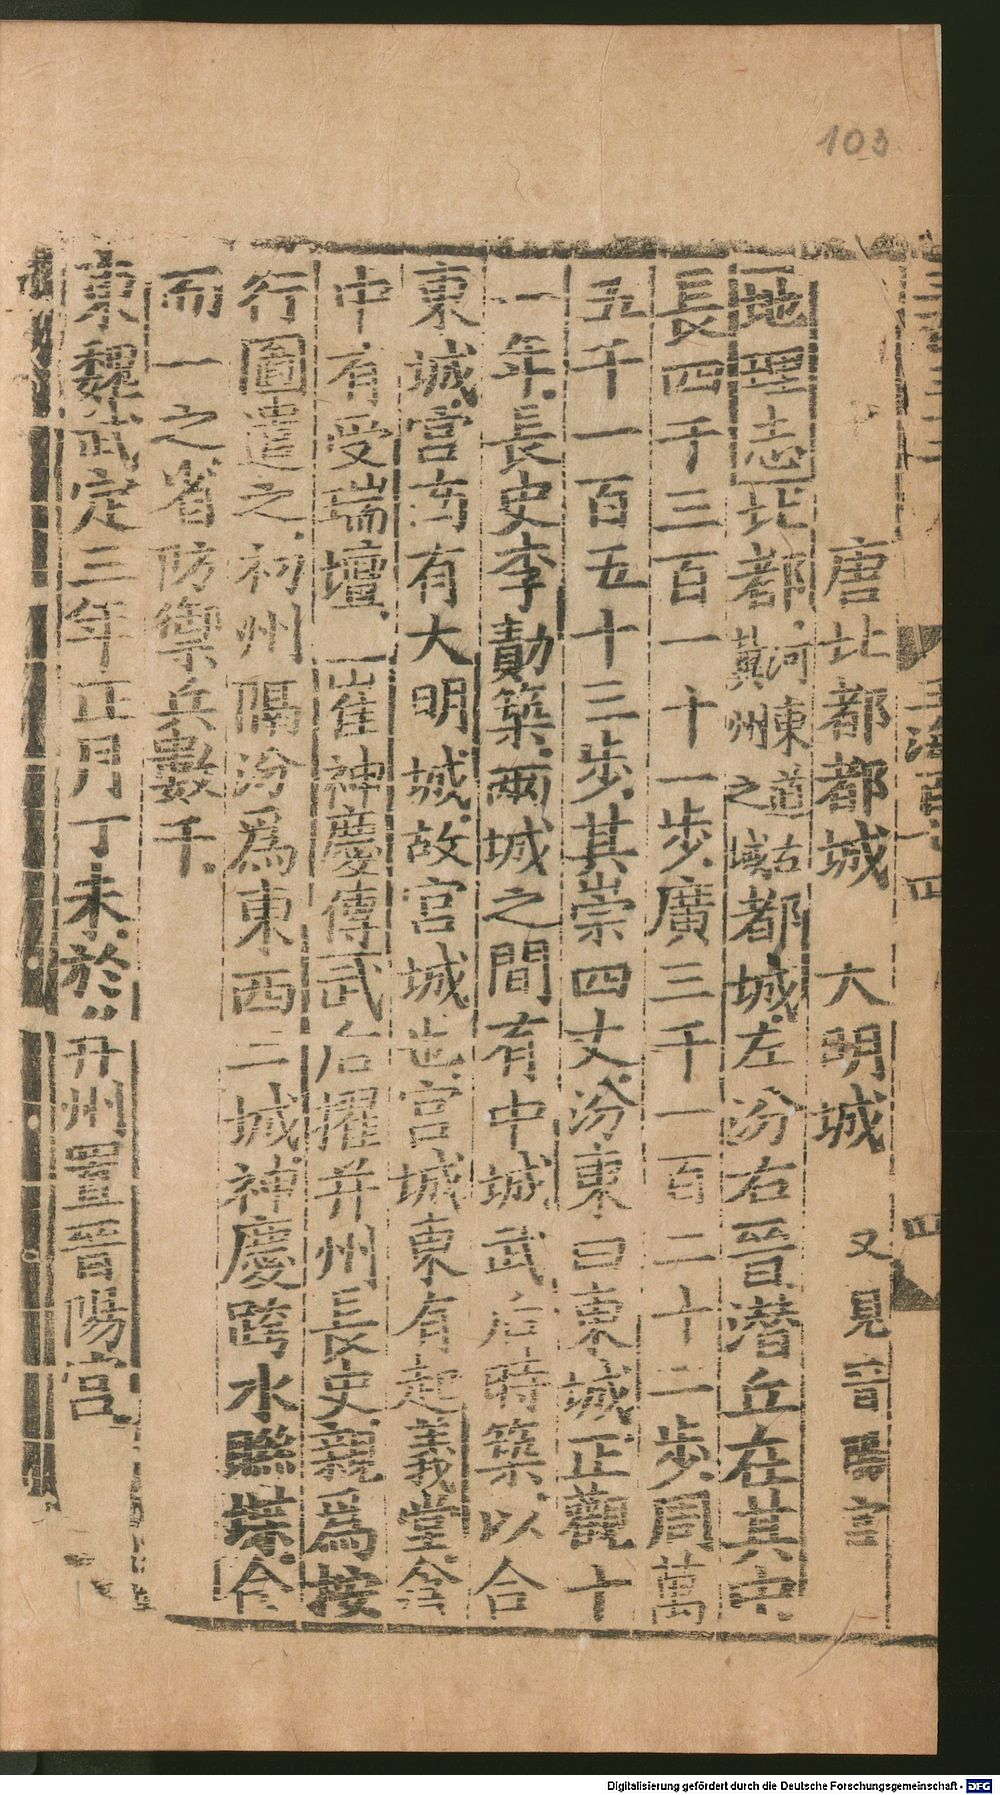 103
唐北都都城　大明城　又見晉陽宫
地理志北都河東道古冀州之域都城左汾右晉潜丘在其中
長四千三百一十一步廣三千一百二十二步周萬
五千一百五十三步其崇四丈汾東曰東城正觀十
一年長史李勣築兩城之間有中城武后時築以合
東城宫南有大明城故宫城也宫城東有起義堂倉
中有受瑞壇崔神慶傳武后擢并州長史親爲按
行圖遣之初州隔汾爲東西二城神慶跨水聯堞合
而一之省防禦兵數千
東魏武定三年正月丁未於并州置晉陽宫
Digitalisierung gefördert durch die Deutsche Forschungsgemeinschaft - DFG